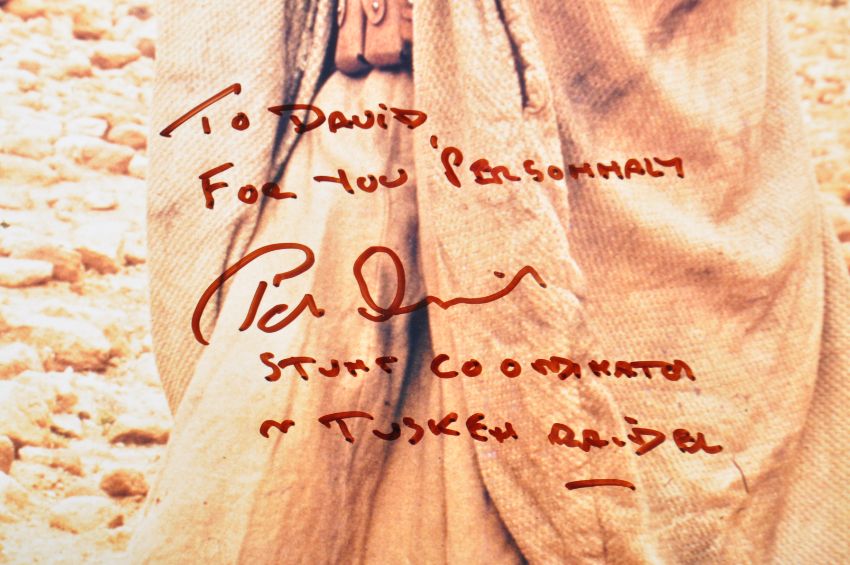 To DAViD,
FOR YOU 'PERSONNALY
STUNT COORDINATOR
N TUSKEN RAIDER